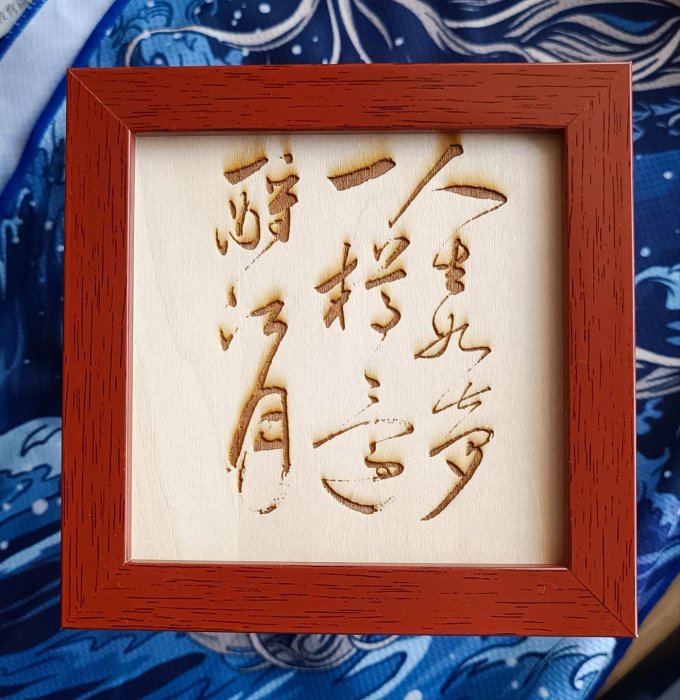 人生如夢
一樽還
酹江月